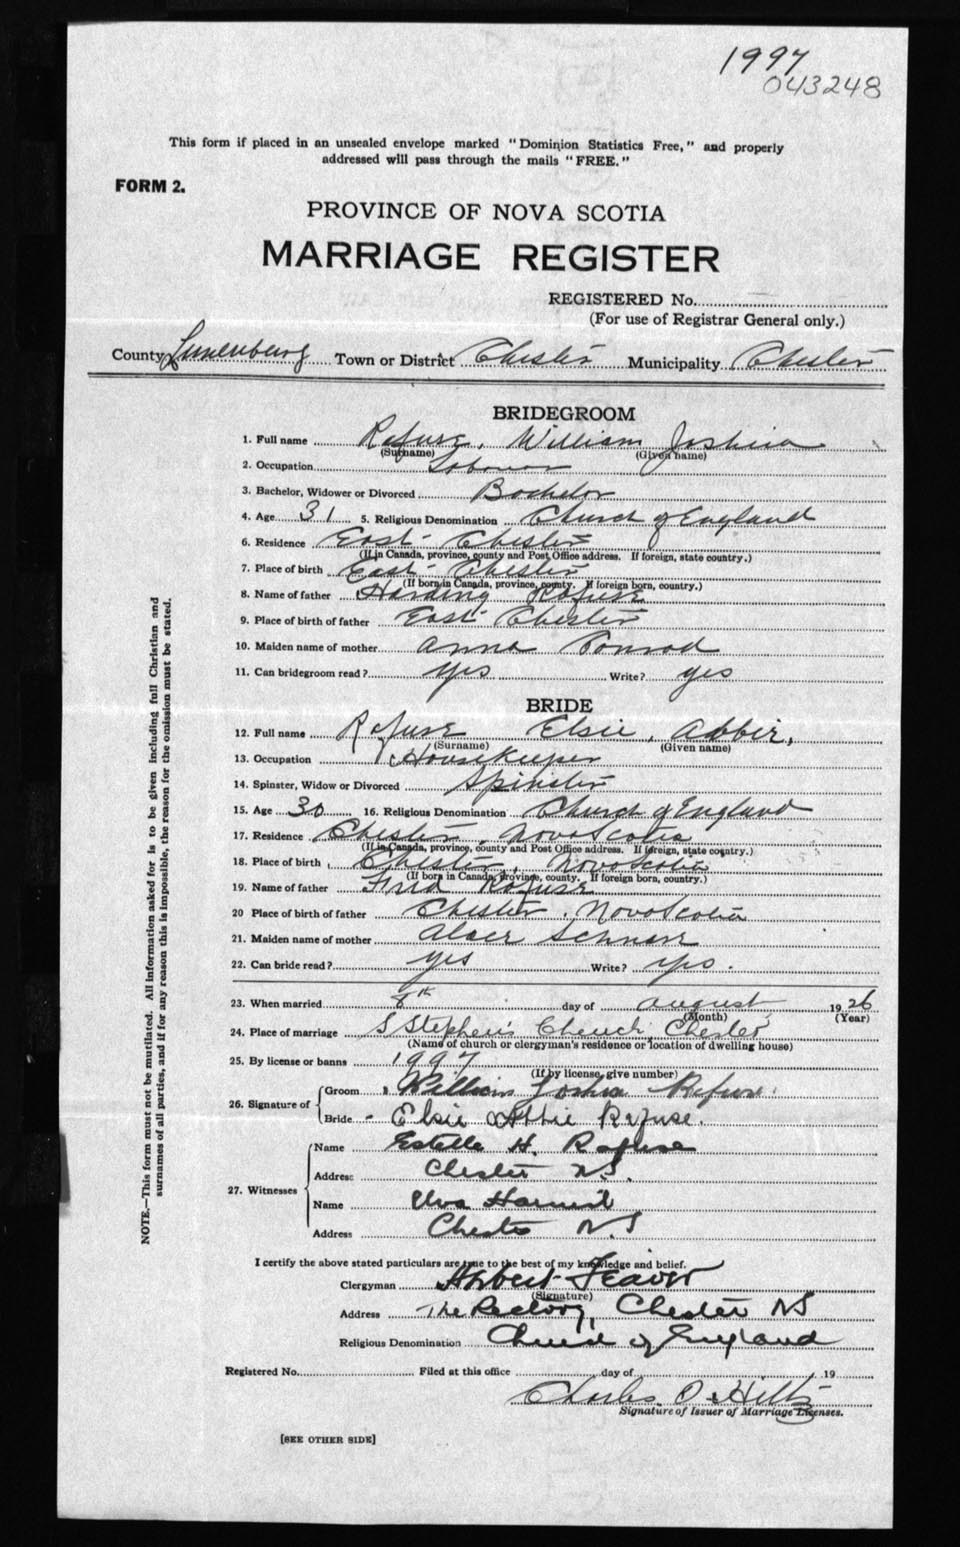 1997
043248
This form if placed in an unsealed envelope marked "Dominion Statistics Free," and properly
addressed will pass through the mails "FREE."
FORM 2.
PROVINCE OF NOVA SCOTIA
MARRIAGE REGISTER
REGISTERED No.
(For use of Registrar General only.)
County Lunenburg Town or District Chester Municipality Chester
BRIDEGROOM
1. Full name Refuse, William Joshua
(Surname) (Given name)
2. Occupation Labourer
3. Bachelor, Widower or Divorced Bachelor
4. Age 31 5. Religious Denomination Church of England
6. Residence East Chester
(If in Canada, province, county and Post Office address. If foreign, state country.)
7. Place of birth East Chester
(If born in Canada, province, county. If foreign born, country.)
8. Name of father Harding Refuse
9. Place of birth of father East Chester
10. Maiden name of mother Anna Conrod
11. Can bridegroom read? yes Write? yes
BRIDE
12. Full name Refuse Elsie, Abbie,
(Surname) (Given name)
13. Occupation Housekeeper
14. Spinster, Widow or Divorced Spinster
15. Age 30 16. Religious Denomination Church of England
17. Residence Chester, Nova Scotia
(If in Canada, province, county and Post Office address. If foreign, state country.)
18. Place of birth Chester, Nova Scotia
(If born in Canada, province, county. If foreign born, country.)
19. Name of father Fred Refuse
20 Place of birth of father Chester, Nova Scotia
21. Maiden name of mother
22. Can bride read? yes Write? yes.
23. When married 8th day of August 1926
(Month) (Year)
24. Place of marriage S Stephen's Church Chester
(Name of church or clergyman's residence or location of dwelling house)
25. By license or banns 1997
(If by license, give number)
26. Signature of Groom William Joshua Refuse.
Bride Elsie Abbie Refuse.
27. Witnesses Name Estelle H. Refuse
Address Chester N.S.
Name Elva
Address Chester N.S
I certify the above stated particulars are true to the best of my knowledge and belief.
Clergyman Herbert Feaver
(Signature)
Address The Rectory, Chester NS
Religious Denomination Church of England
Registered No. Filed at this office day of 19
Charles O. Hiltz
Signature of Issuer of Marriage Licenses.
[SEE OTHER SIDE]
NOTE.—This form must not be mutilated. All information asked for is to be given including full Christian and
surnames of all parties, and if for any reason this is impossible, the reason for the omission must be stated.